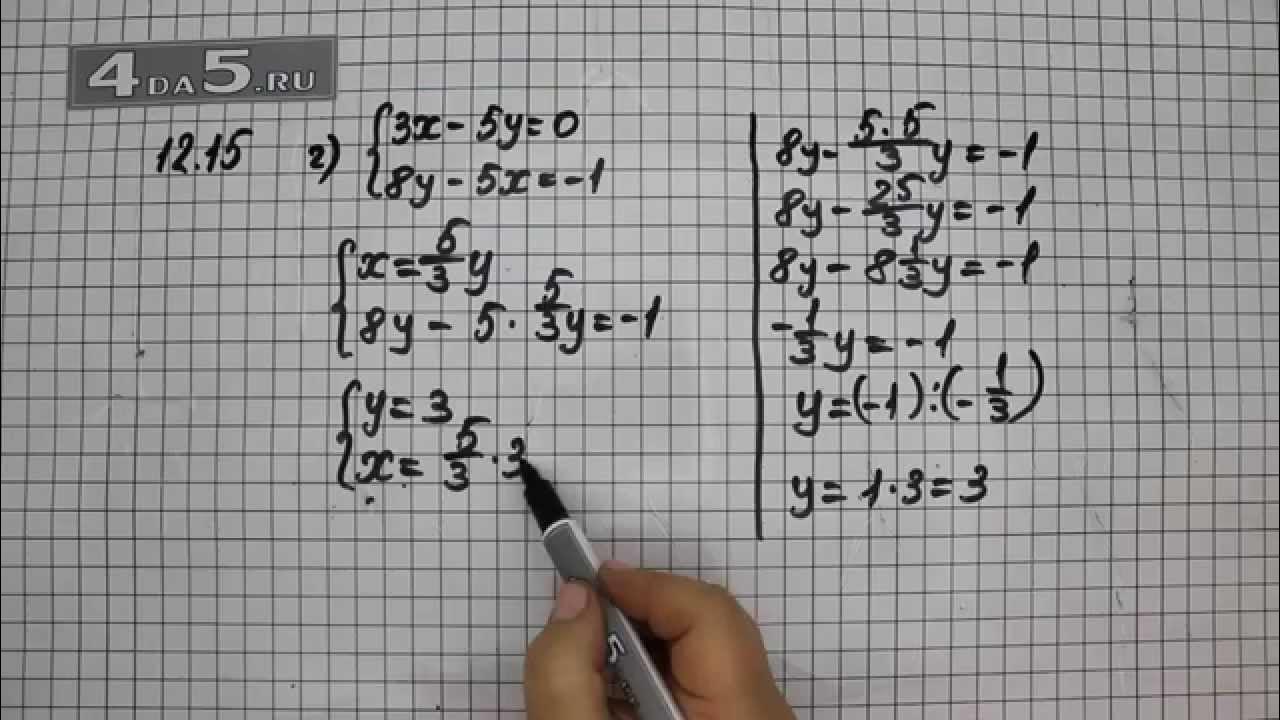 4DA5.RU
12.15 г) {3x - 5y = 0
{8y - 5x = -1
{x = 5/3 y
{8y - 5 · 5/3 y = -1
{y = 3
{x = 5/3 · 3
8y - 5·5/3 y = -1
8y - 25/3 y = -1
8y - 8 1/3 y = -1
-1/3 y = -1
y = (-1) : (-1/3)
y = 1·3 = 3